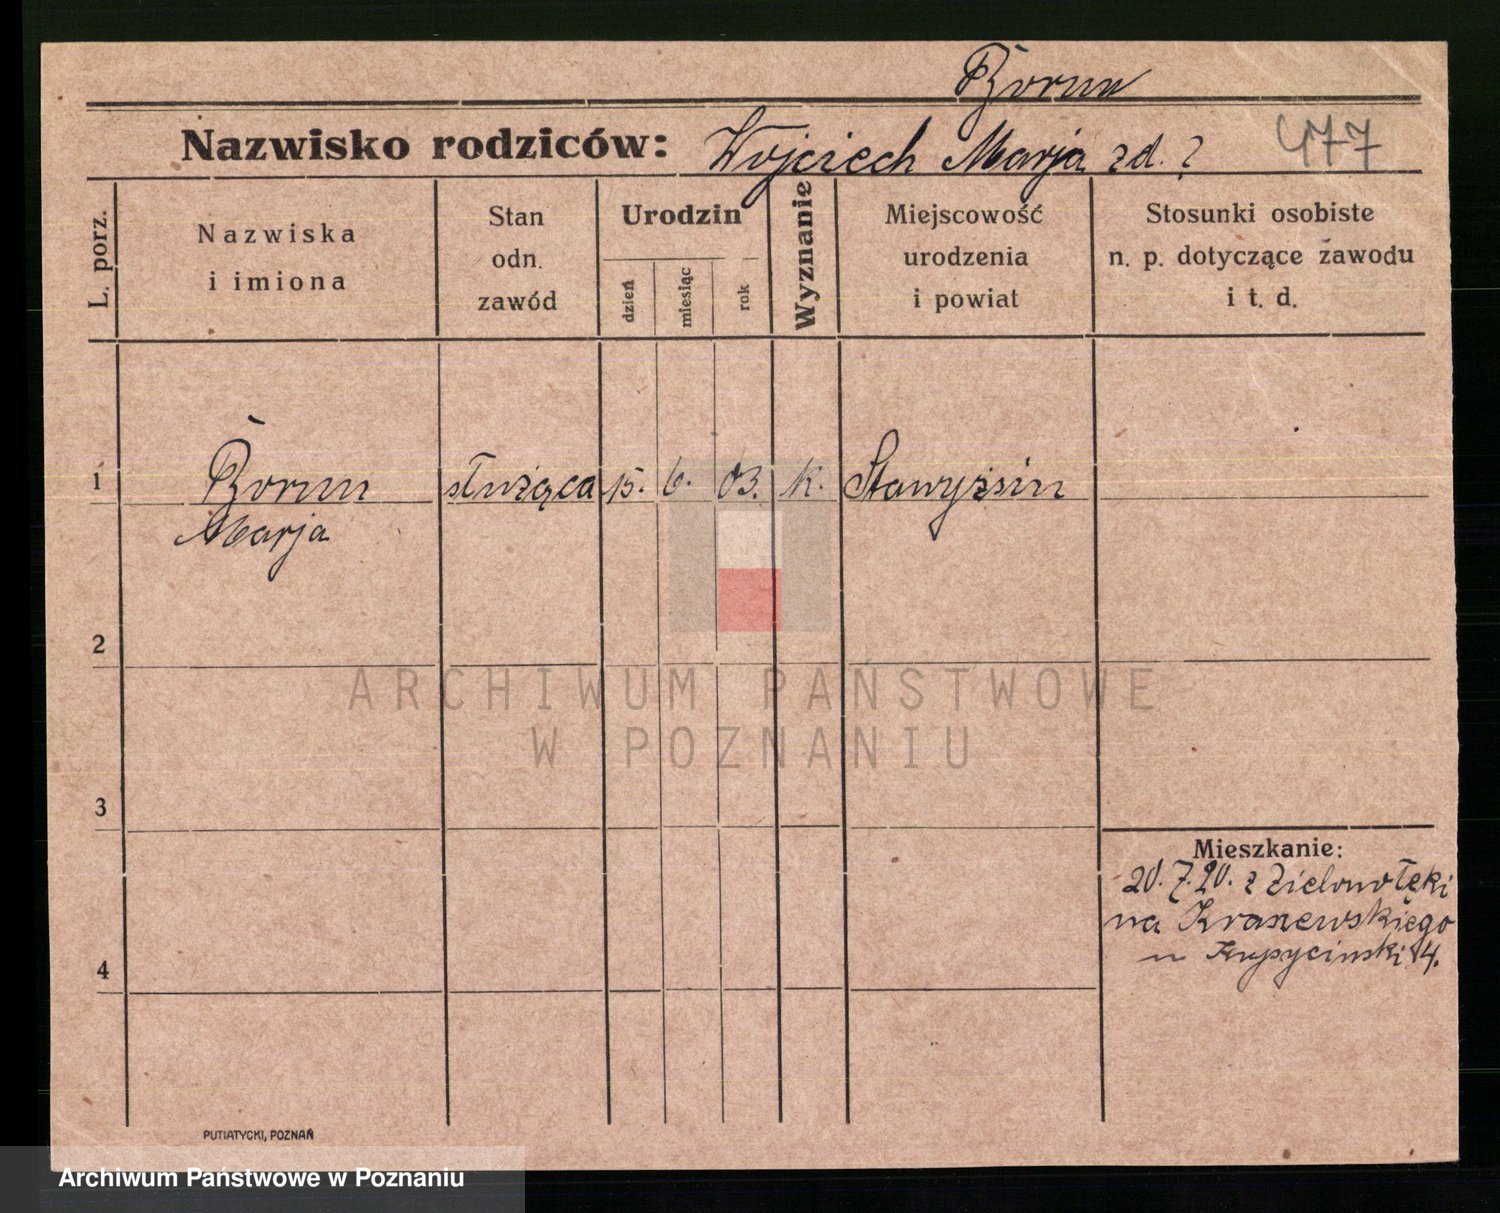 Borun
Nazwisko rodziców: Wojciech Marja zd. ? 477
L. porz.
Nazwiska
i imiona
Stan
odn.
zawód
Urodzin
dzień
miesiąc
rok
Wyznanie
Miejscowość
urodzenia
i powiat
Stosunki osobiste
n. p. dotyczące zawodu
i t. d.
1 Borun służąca 15. 6. 03. k. Stawyżsin
Marja
2
ARCHIWUM PAŃSTWOWE
W POZNANIU
3
Mieszkanie:
20. 7. 20. z
na Kraszewskiego
4.
4
PUTIATYCKI, POZNAŃ
Archiwum Państwowe w Poznaniu